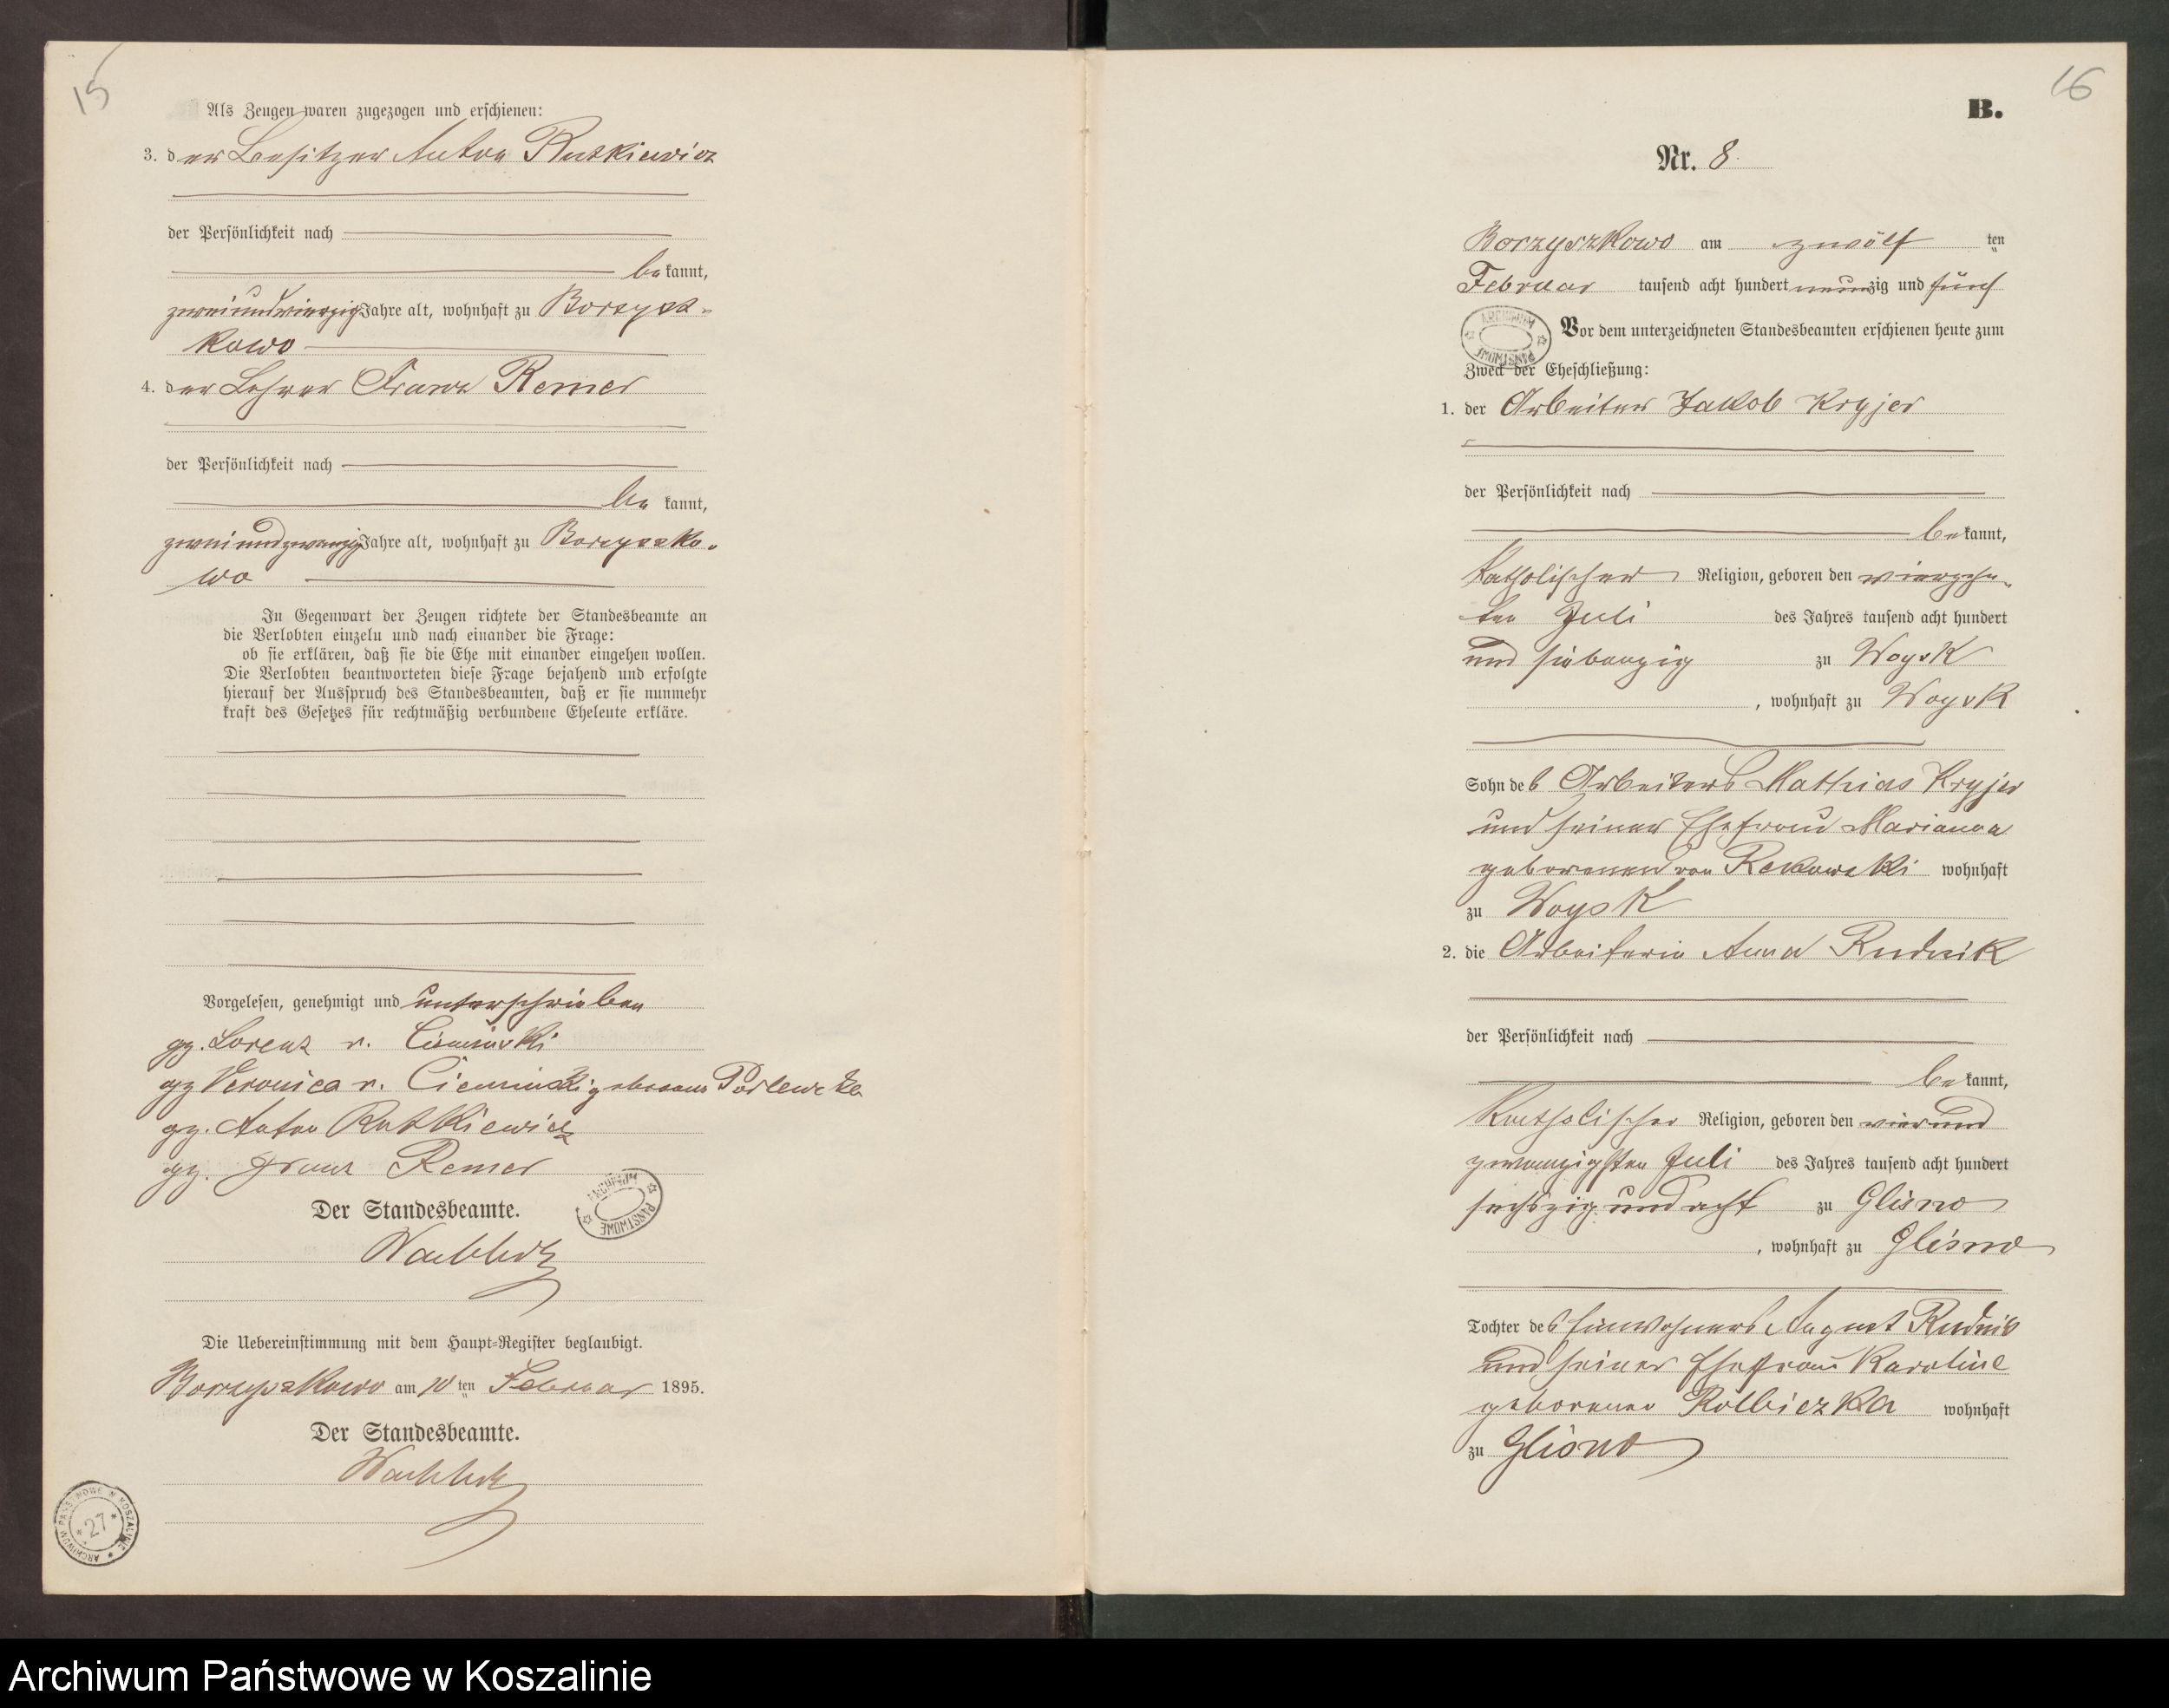 15
Als Zeugen waren zugezogen und erschienen:
3. der Besitzer Anton Rutkiewicz
der Persönlichkeit nach
bekannt,
zweiundvierzig Jahre alt, wohnhaft zu Borzysz-
kowo
4. der Lehrer Franz Remer
der Persönlichkeit nach
be kannt,
zweiundzwanzig Jahre alt, wohnhaft zu Borzyszko-
wo
In Gegenwart der Zeugen richtete der Standesbeamte an
die Verlobten einzeln und nach einander die Frage:
ob sie erklären, daß sie die Ehe mit einander eingehen wollen.
Die Verlobten beantworteten diese Frage bejahend und erfolgte
hierauf der Ausspruch des Standesbeamten, daß er sie nunmehr
kraft des Gesetzes für rechtmäßig verbundene Eheleute erkläre.
Vorgelesen, genehmigt und unterschrieben
gz. Lorenz v. Cieminski
gz Veronica v. Cieminski geborene
gz. Anton Rutkiewicz
gz. Franz Remer
ARCHIWUM PAŃSTWOWE
Der Standesbeamte.
Die Uebereinstimmung mit dem Haupt-Register beglaubigt.
Borzyszkowo am 10 ten Februar 1895.
Der Standesbeamte.
ARCHIWUM PAŃSTWOWE W KOSZALINIE
27
16
B.
Nr. 8.
Borzyszkowo am zwölf ten
Februar tausend acht hundert neunzig und fünf
ARCHIWUM PAŃSTWOWE
Vor dem unterzeichneten Standesbeamten erschienen heute zum
Zweck der Eheschließung:
1. der Arbeiter Jakob Kryjer
der Persönlichkeit nach
bekannt,
katholischer Religion, geboren den vierzehn-
ten Juli des Jahres tausend acht hundert
und siebenzig zu Woysk
, wohnhaft zu Woysk
Sohn des Arbeiters Mathias Kryjer
und seiner Ehefrau Marianna
geborenen von Rekowski wohnhaft
zu Woysk
2. die Arbeiterin Anna Rudnik
der Persönlichkeit nach
bekannt,
katholischer Religion, geboren den vierund
zwanzigsten Juli des Jahres tausend acht hundert
sechszig und acht zu Glisno
, wohnhaft zu Glisno
Tochter des Einwohners August Rudnik
und seiner Ehefrau Karoline
geborenen Kolbiezka wohnhaft
zu Glisno
Archiwum Państwowe w Koszalinie